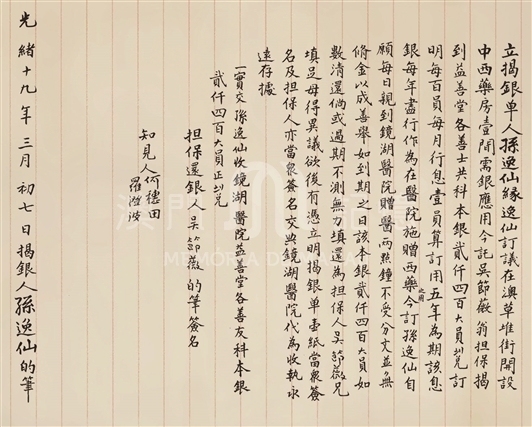 立揭銀單人孫逸仙緣逸仙訂議在澳草堆街開設
中西藥房壹間需銀應用今託吳節薇翁担保揭
到益善堂各善士共科本銀貳仟四百大員正兌訂
明每百員每月行息壹員算訂用五年為期該息
銀每年盡行作為在醫院施贈西藥之用今訂孫逸仙自
願每日親到鏡湖醫院贈醫兩點鐘不受分文並無
脩金以成善舉如到期之日該本銀貳仟四百大員如
數清還倘或過期不測無力填還為担保人吳節薇兄
填足毋得異議欲後有憑立明揭銀单壹紙當衆簽
名及担保人亦當衆簽名交與鏡湖醫院代為收執永
遠存據
一實交孫逸仙收鏡湖醫院益善堂各善友科本銀
貳仟四百大員正兌
担保還銀人吳節薇的筆簽名
知見人何穗田
羅
光緒十九年三月初七日揭銀人孫逸仙的筆
澳門
MEMÓRIA DE